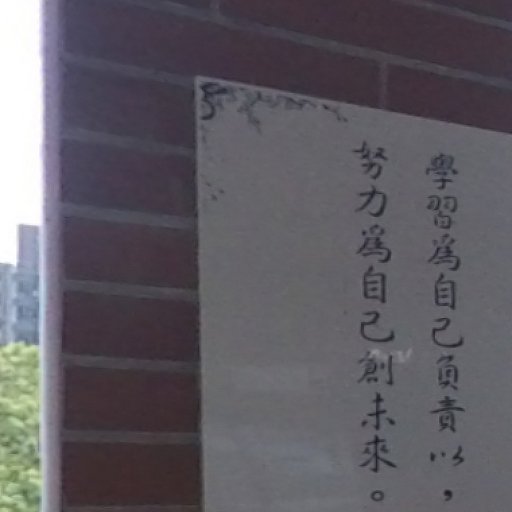 學習為自己負責以，
努力為自己創未來。